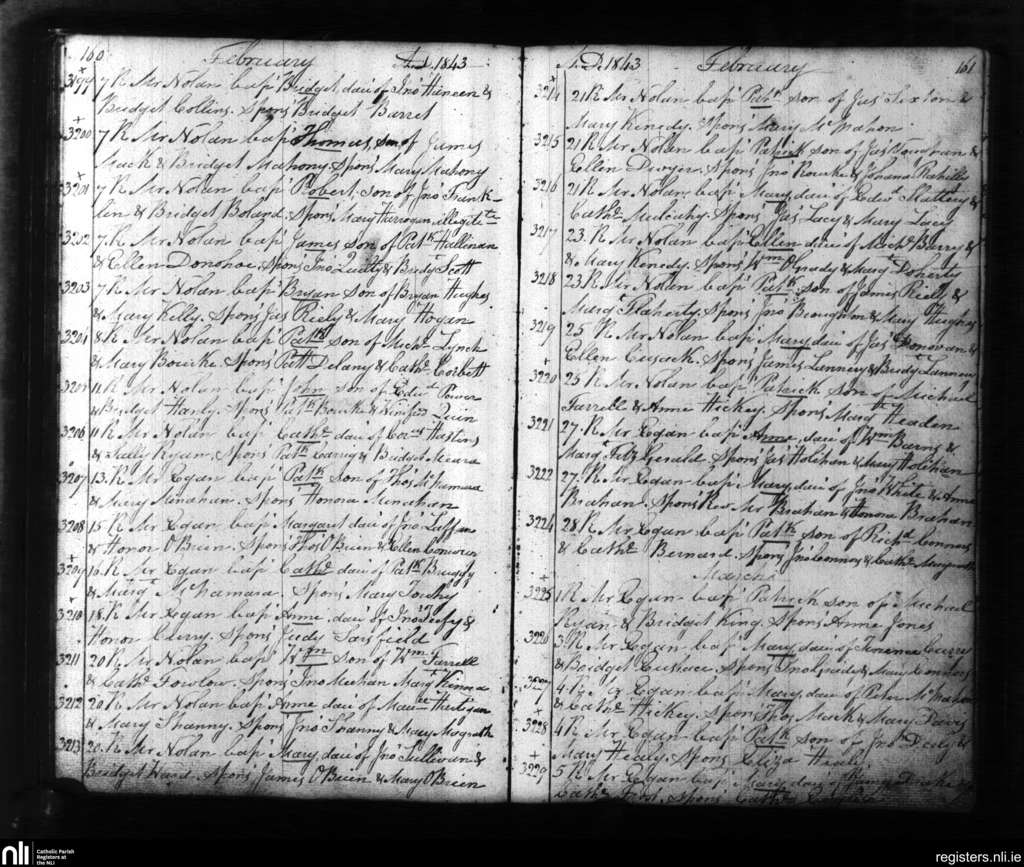 160 February A.D. 1843
3199 7 Rd. Mr Nolan bapd Bridget, daur of Jno Haneen &
Bridget Collins. Spons Bridget Barret
3200 7 Rd. Mr Nolan bapd Thomas, son of James
Mack & Bridget Mahony. Spons Mary Mahony
3201 7 Rd. Mr Nolan bapd Robert, son of Jno Frank-
lin & Bridget Boland. Spons Mary Harrogan, illegitte
3202 7. Rd. Mr Nolan bapd James son of Patk Hallinan
& Ellen Donohoe. Spons Jno Quilty & Bridgt Scott
3203 7 Rd. Mr Nolan bapd Bryan son of Bryan Hughes
& Mary Kelly. Spons Jas Riely & Mary Hogan
3204 8 Rd. Mr Nolan bapd Patk son of Michl Lynch
& Mary Bourke. Spons Patt Delany & Cathe Corbett
3205 11 Rd. Mr Nolan bapd John son of Edwd Power
& Bridget Hanly. Spons Patk Bourke & Winifrid Quin
3206 11 Rd. Mr Nolan bapd Cathe daur of Hastins
& Sally Ryan. Spons Patk & Bridget Meara
3207 13. Rd. Mr Egan bapd Patk son of Thos McNamara
& Mary Minahan. Spons Honora Minahan
3208 15 Rd. Mr Egan bapd Margaret daur of Jno Laffan
& Honor O'Brien. Spons Thos O'Brien & Ellen
3209 16 Rd. Mr Egan bapd Cathe daur of Patk Bruddy
& Margt McNamara. Spons Mary Touhy
3210 18. Rd. Mr Egan bapd Anne, daur of Jno &
Honor Clerry. Spons Judy Sarsfield
3211 20 Rd. Mr Nolan bapd Wm son of Wm Farrell
& Cathe Fowlow. Spons Jno Meehan Margt Kinna
3212 20 Rd. Mr Nolan bapd Anne daur of Maurce Hartigan
& Mary Shanny. Spons Jno Shanny & Mary Magrath
3213 20. Rd. Mr Nolan bapd Mary, daur of Jno Sullivan &
Bridget Ward. Spons James O'Brien & Mary O'Brien
A.D. 1843 February 161
3214 21 Rd. Mr Nolan bapd Patk son of Jas Sexton &
Mary Kenedy. Spons Mary McMahon
3215 21 Rd. Mr Nolan bapd Patrick son of Jas &
Ellen Dwyer. Spons Jno Rourke &
3216 21 Rd. Mr Nolan bapd Mary daur of Edwd Slattery &
Cathe Mulcahy. Spons Jas Lacy & Mary Lacy
3217 23. Rd. Mr Nolan bapd Ellen daur of Michl Barry &
& Mary Kenedy. Spons Wm O'Grady & Margt Doherty
3218 23 Rd. Mr Nolan bapd Patk son of James Rielly &
Margt Flaherty. Spons Jno Broughton & Mary Hughes
3219 25 Rd. Mr Nolan bapd Mary daur of Jas Donovan &
Ellen Cusack. Spons James Lannery & Bridgt Lannery
3220 25 Rd. Mr Nolan bapd Patrick son of Michael
Farrell & Anne Hickey. Spons Margt Headen
3221 27. Rd. Mr Egan bapd Anne, daur of Wm Barns &
Margt Fitz Gerald. Spons Jas Holihan & Mary Holihan
3222 27. Rd. Mr Egan bapd Mary daur of Jno White & Anne
Brahan. Spons Rev. Mr Brahan & Honora Brahan
3224 28 Rd. Mr Egan bapd Patk son of Richd Connors
& Cathe Bernard. Spons Jno Connors & Cathe
March
3225 1 Rd. Mr Egan bapd Patrick son of Michael
Ryan & Bridget King. Spons Anne Jones
3226 3 Rd. Mr Egan bapd Mary daur of Terence Curry
& Bridget Eustace. Spons Jno & Mary Connors
3227 4 Rd. Mr Egan bapd Mary daur of Peter McMahon
& Cathe Hickey. Spons Thos Mack & Mary Davis
3228 4 Rd. Mr Egan bapd Patk son of Jno Daly &
Mary Healy. Spons Eliza Healy
3229 5 Rd. Mr Egan bapd Mary daur of
Cathe Spons Cathe
nli
Catholic Parish
Registers at
the NLI
registers.nli.ie